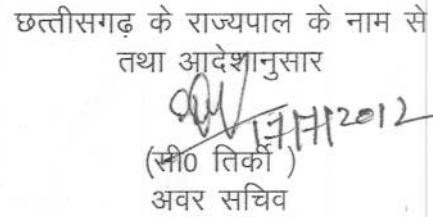 छत्तीसगढ़ के राज्यपाल के नाम से
तथा आदेशानुसार
17/7/2012
(सी0 तिर्की )
अवर सचिव